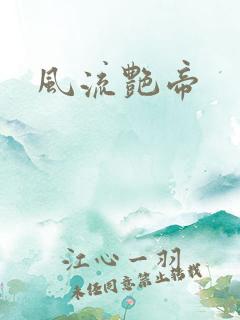 風流艷帝
江心一羽
未经同意禁止转载